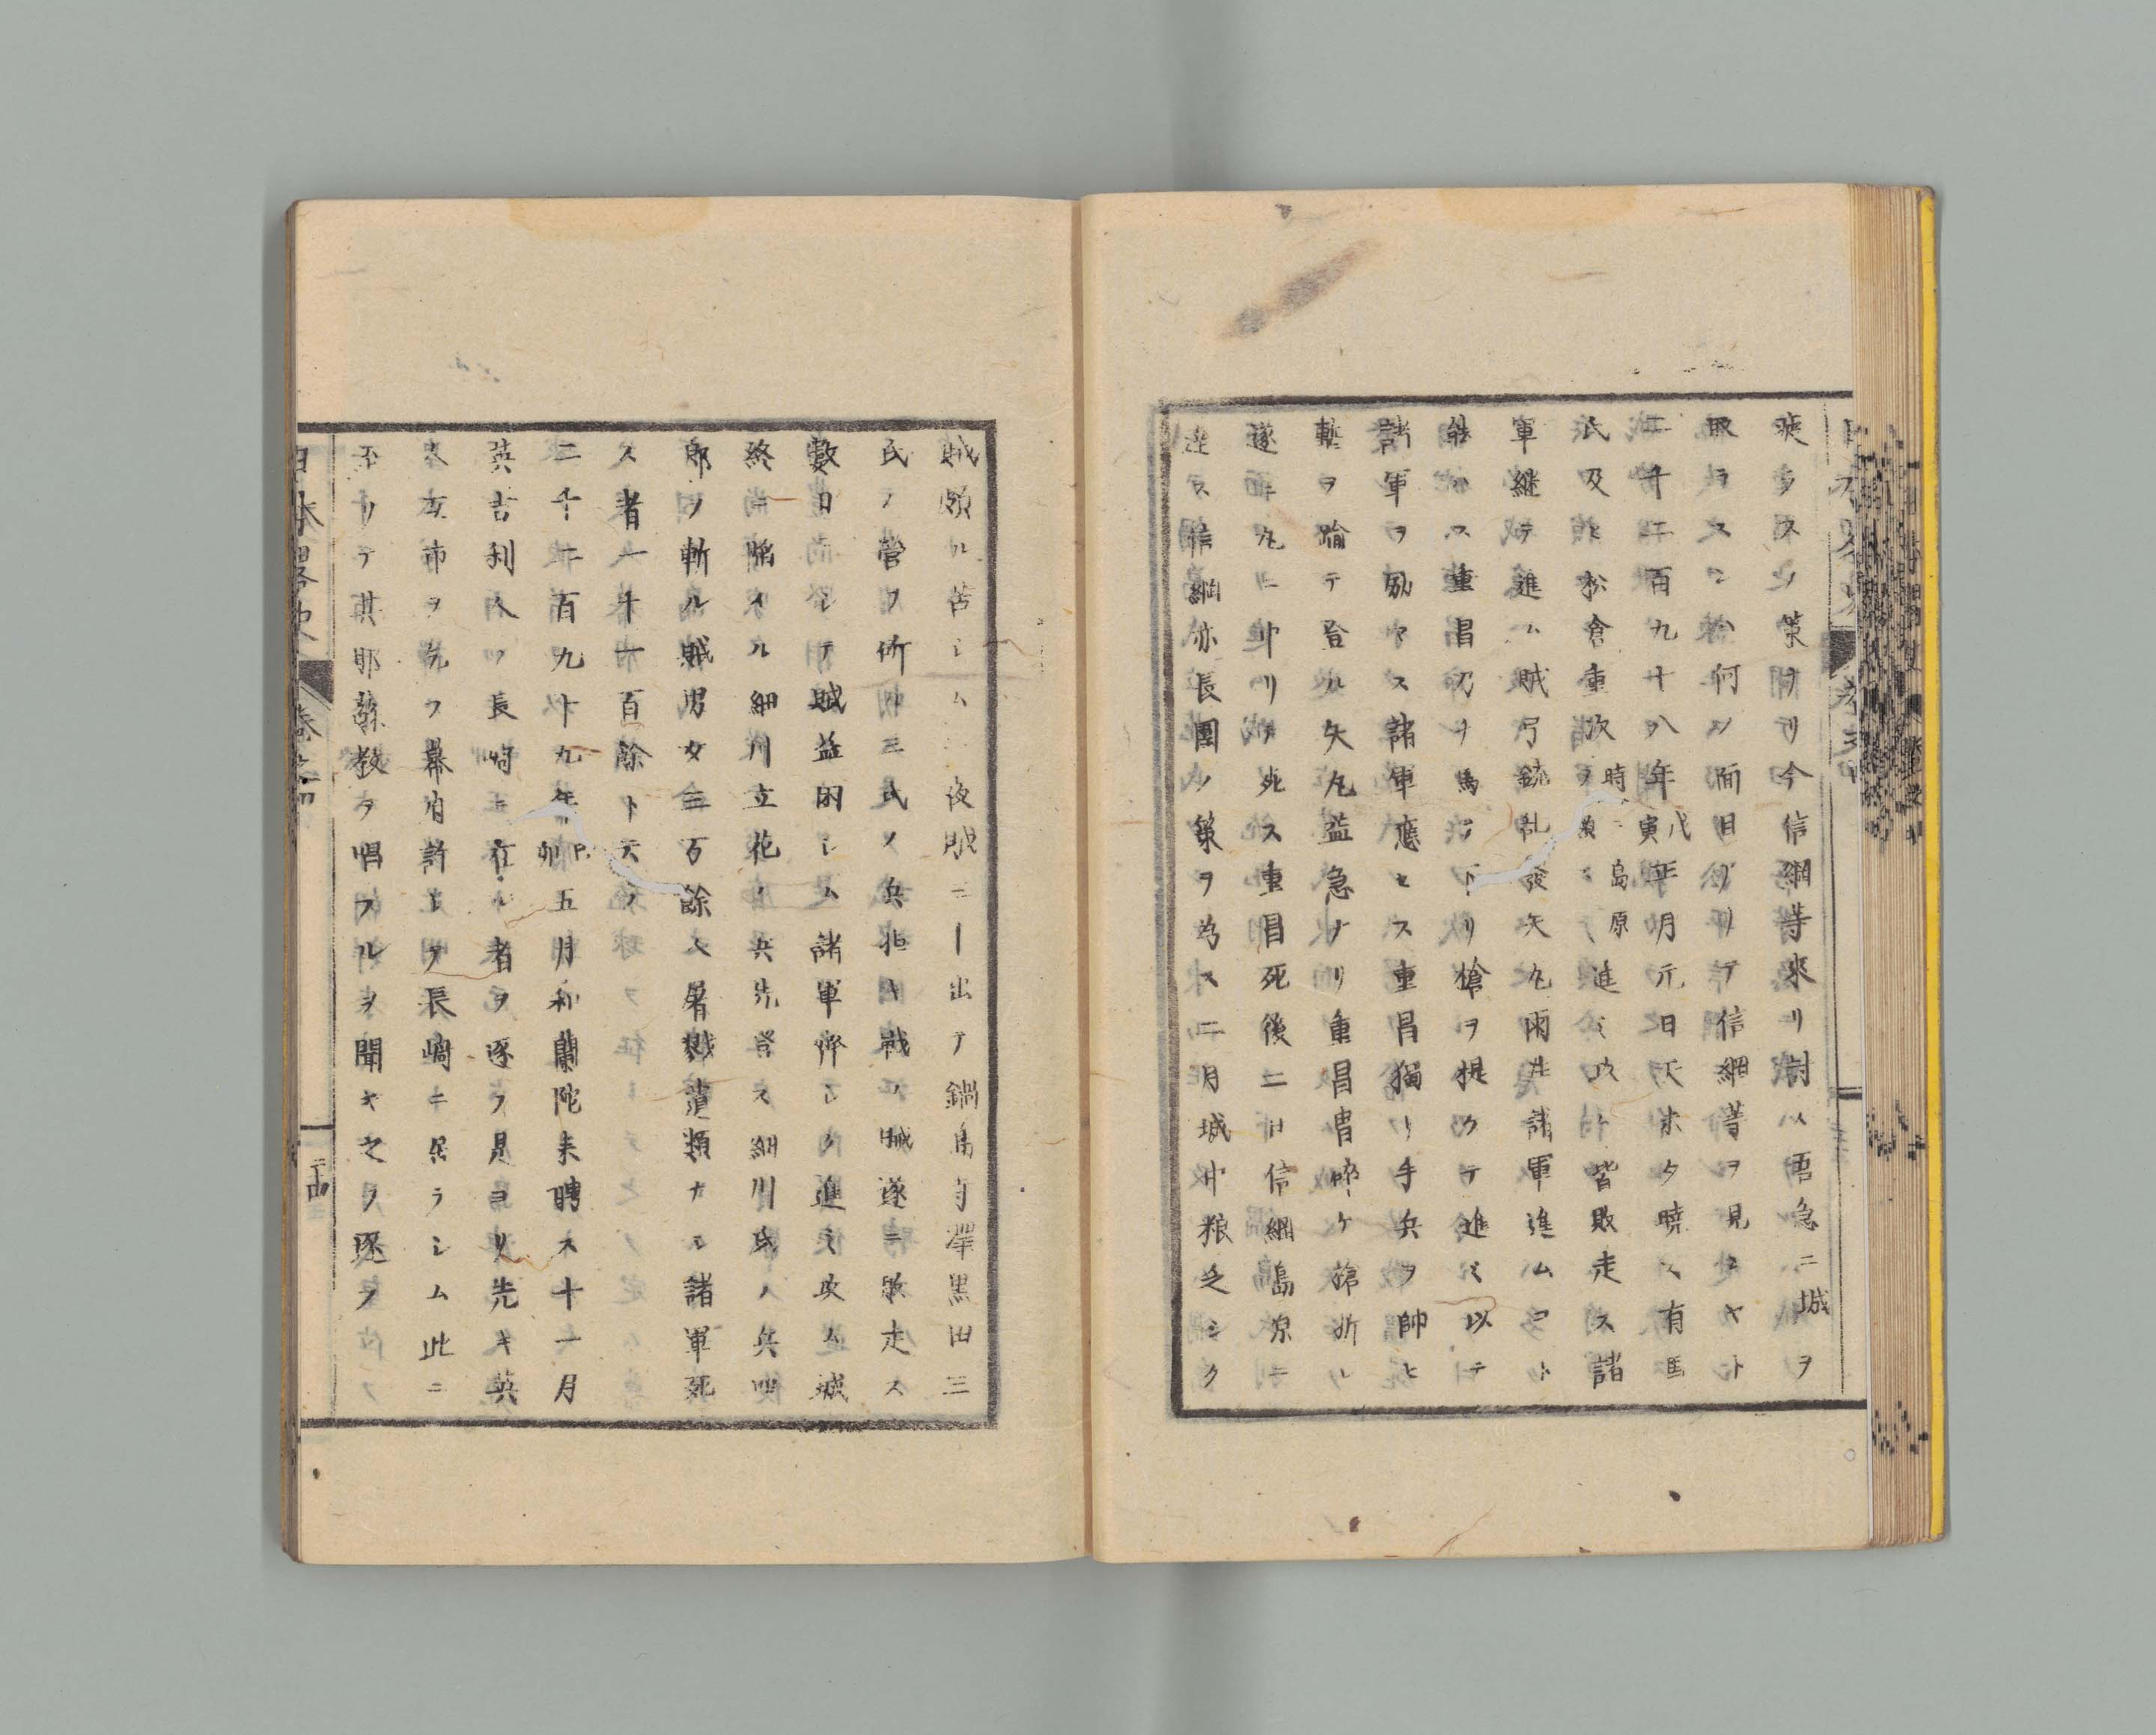 疲ラスノ策ヲリ今信綱等來リ討ハ吾急ニ城ヲ
取ラスンハ何ノ面目アリテ信綱等ヲ見ンヤト
二千二百九十八年戊寅年月元日天未タ曉ヘス有馬
氏及ヒ松倉重次時ニ島原ノ領進ミ攻ト皆敗走ス諸
軍継テ進ム賊弓銃乱發矢丸雨注諸軍進ムコト
能ハス重昌乃チ馬ヨリ下リ槍ヲ提ケテ進ミ以テ
諸軍ヲ励マス諸軍應セス重昌獨リ手兵ヲ帥ヒ
塹ヲ踰テ登ル矢丸益急ナリ重昌冑碎ケ槍折レ
遂ニ丸ニ中リテ死ス重昌死後二日信綱島原ニ
達ス信綱亦長圍ノ策ヲ為ス二月城中粮乏シク
賊頗ル苦シム夜賊三千出テ鍋島寺澤黒田三
氏ノ營ヲ斫ル三氏ノ兵拒キ戰ヒ賊遂ニ敗走ス
數日ニシテ賊益困シム諸軍齊シク進ミ攻ム城
終ニ陥イル細川立花ノ兵先登ス細川氏ノ兵四
郎ヲ斬ル賊男女三万餘人屠戮遺類ナシ諸軍死
ス者一千一百餘ト云フ
二千二百九十九年己卯五月和蘭陀来聘ス十一月
英吉利人ノ長崎ニ在ル者ヲ逐フ是ヨリ先キ英
人互市ヲ乞フ幕府許シテ長崎ニ居ラシム此ニ
至リテ其耶蘇教ヲ唱フルヲ聞キ之ヲ逐フ
日本畧史 巻之四 二十四